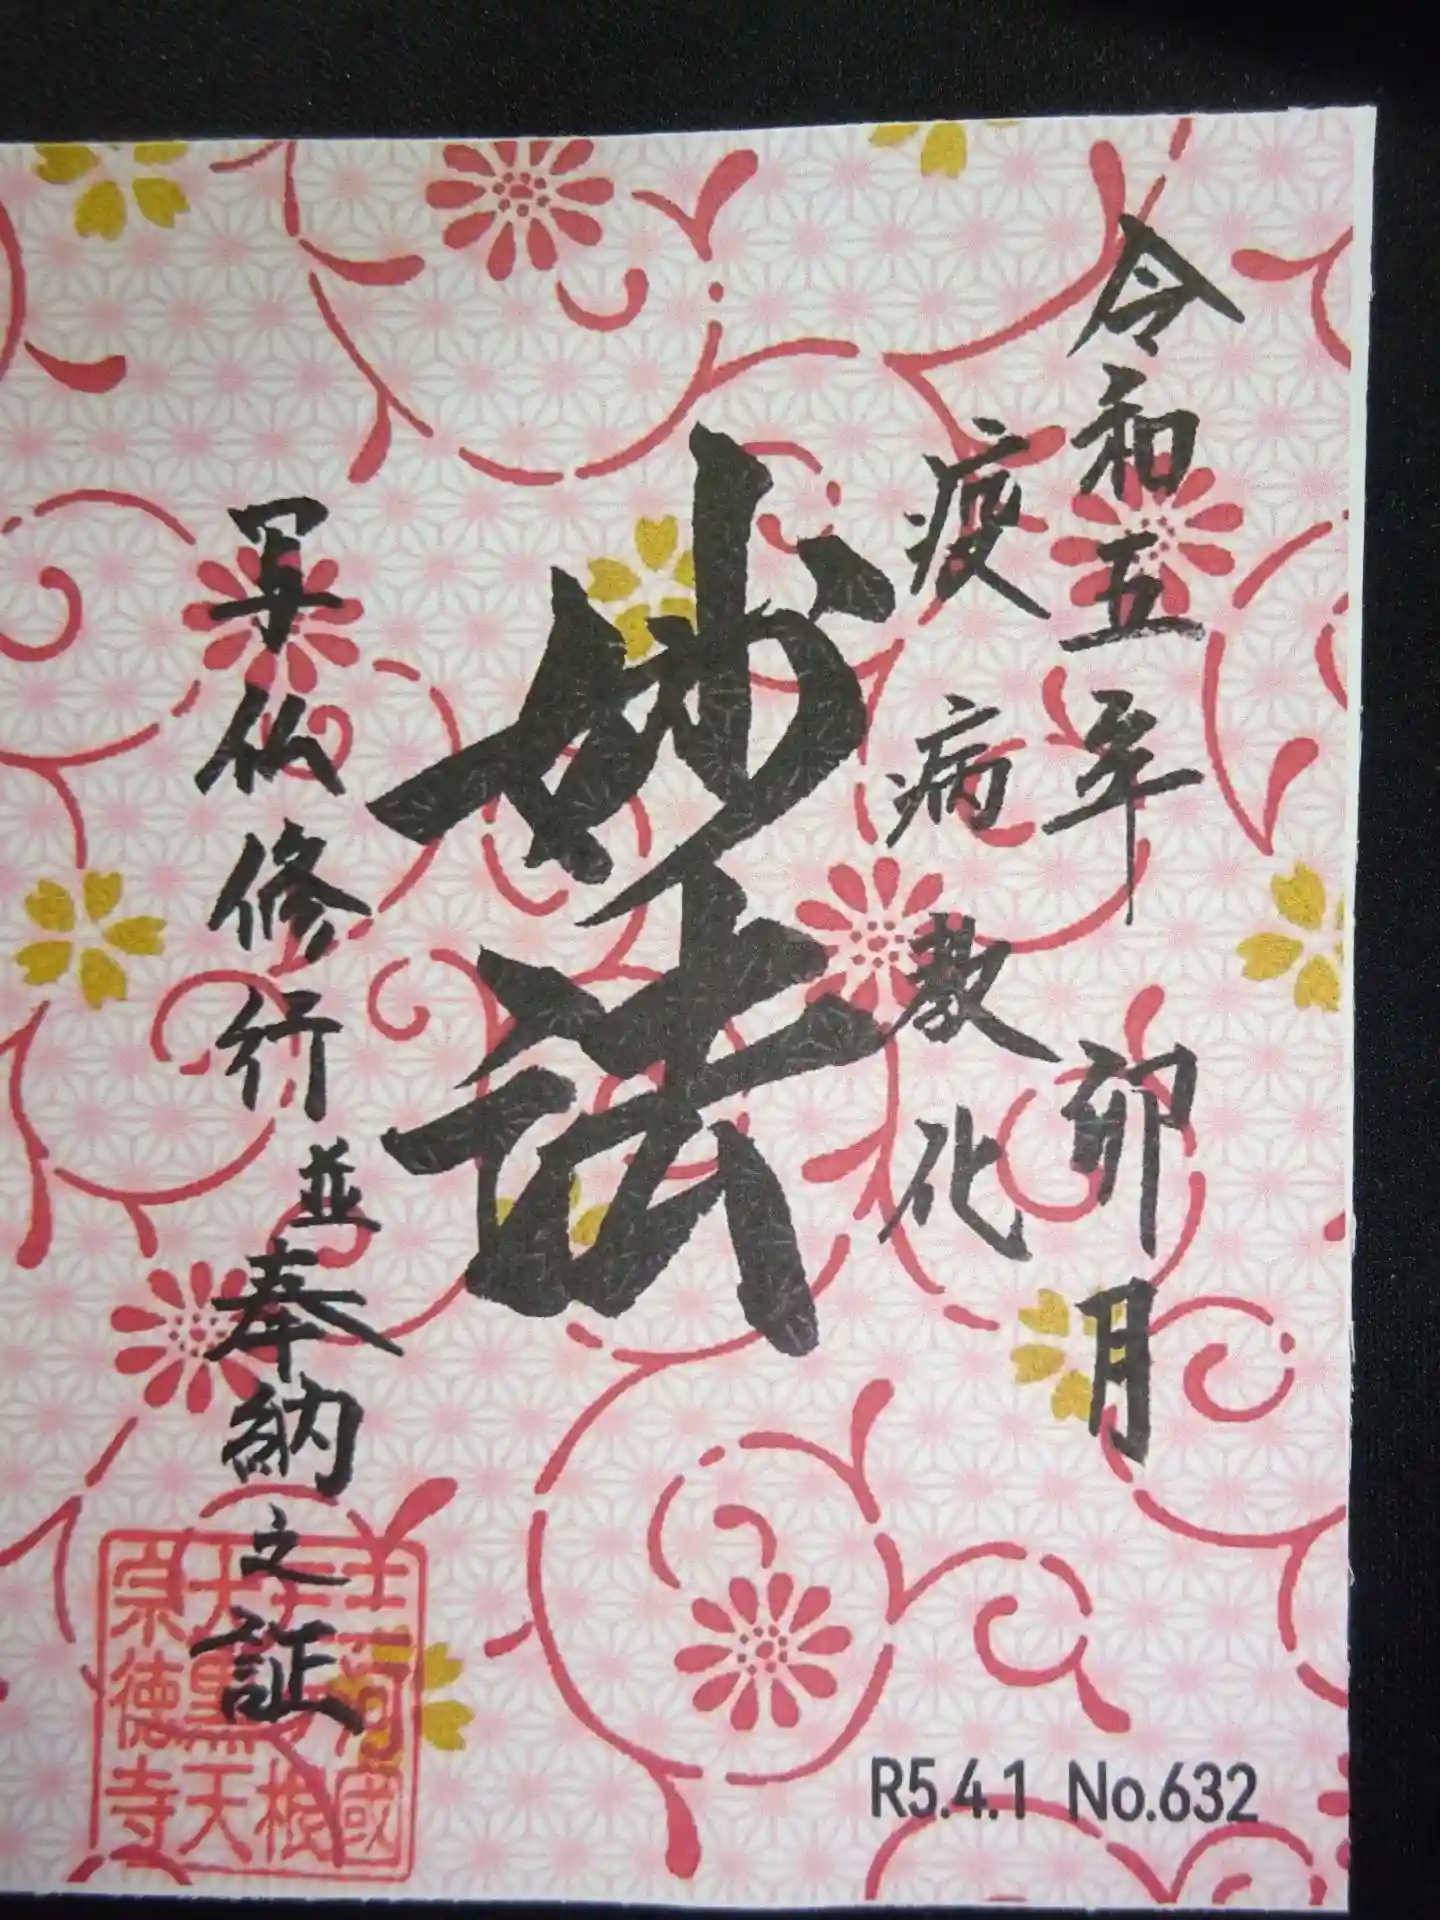 令和五年 卯月
疫病教化
妙法
写仏修行並奉納之証
三河國
大黒天
宗徳寺
R5.4.1 No.632